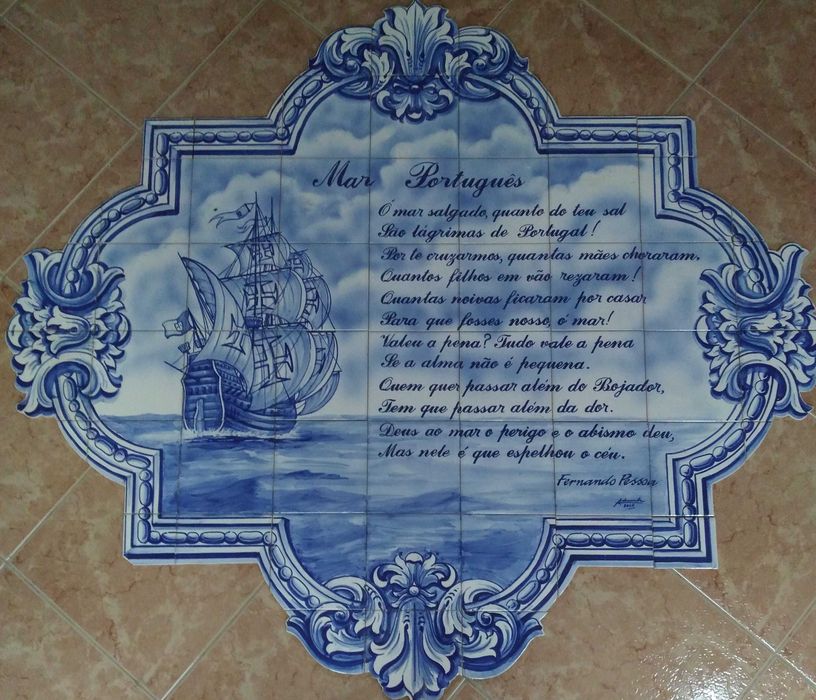 Mar Português
Ó mar salgado, quanto do teu sal
São lágrimas de Portugal!
Por te cruzarmos, quantas mães choraram,
Quantos filhos em vão rezaram!
Quantas noivas ficaram por casar
Para que fosses nosso, ó mar!
Valeu a pena? Tudo vale a pena
Se a alma não é pequena.
Quem quer passar além do Bojador,
Tem que passar além da dor.
Deus ao mar o perigo e o abismo deu,
Mas nele é que espelhou o céu.
Fernando Pessoa